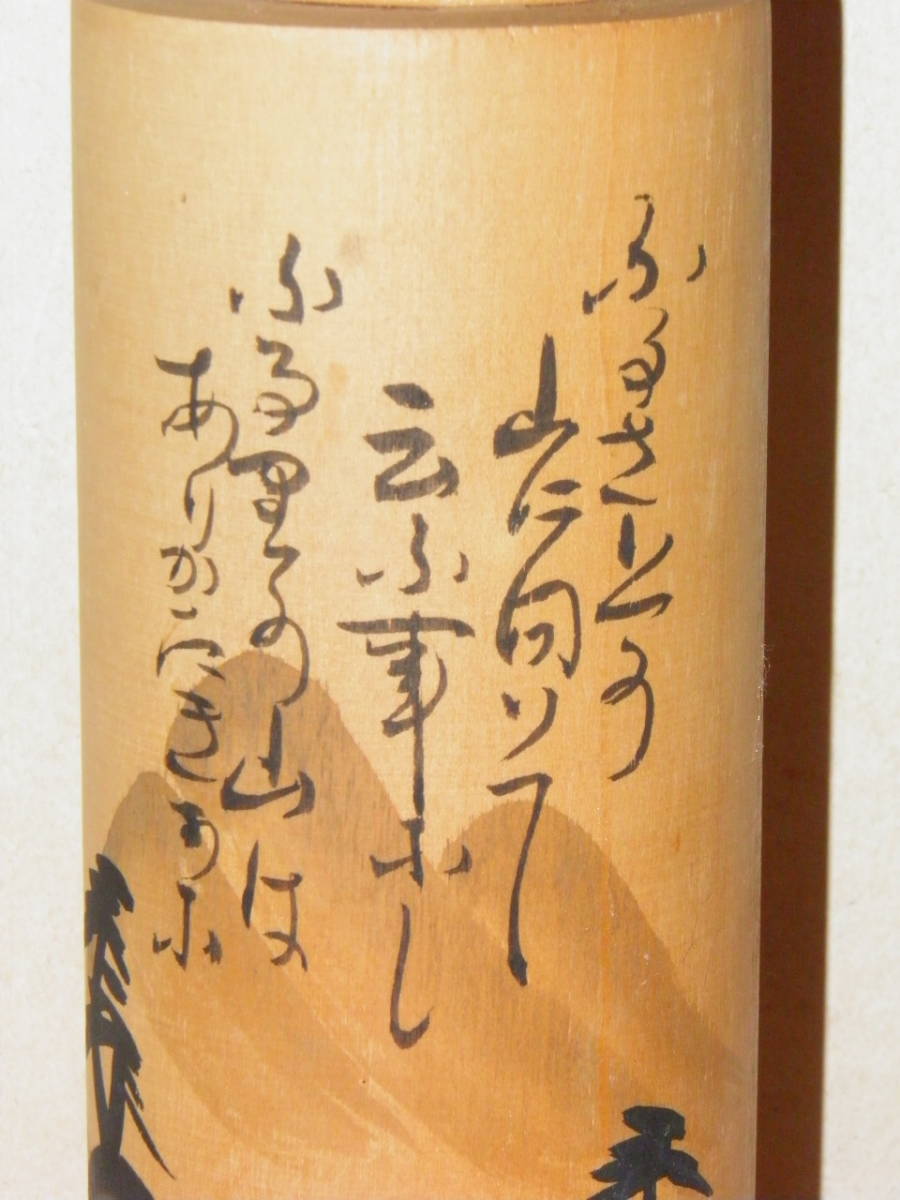 ふるさとの
山に向ひて
云ふ事なし
ふる里の山は
ありがたきかな